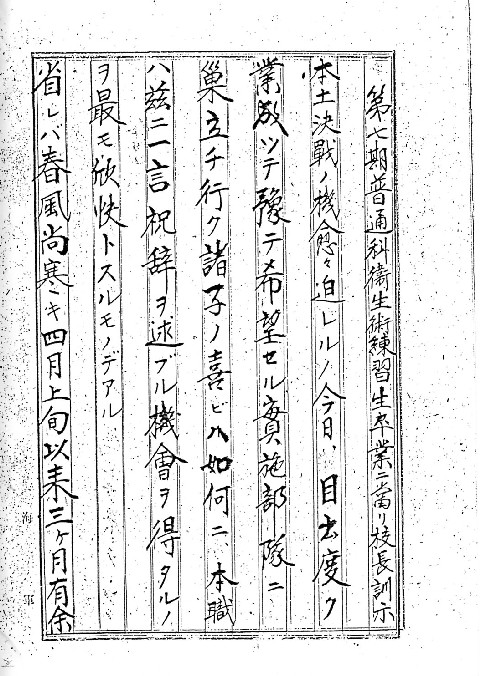 第七期普通科衛生術練習生卒業ニ當リ校長訓示
本土決戰ノ機愈々迫レルノ今日、目出度ク
業成ツテ豫テ希望セル實施部隊ニ
巢立チ行ク諸子ノ喜ビハ如何ニ、本職
ハ茲ニ一言祝辞ヲ述ブル機會ヲ得タルノ
ヲ最モ欣快トスルモノデアル
省レバ春風尚寒キ四月上旬以来三ヶ月有余